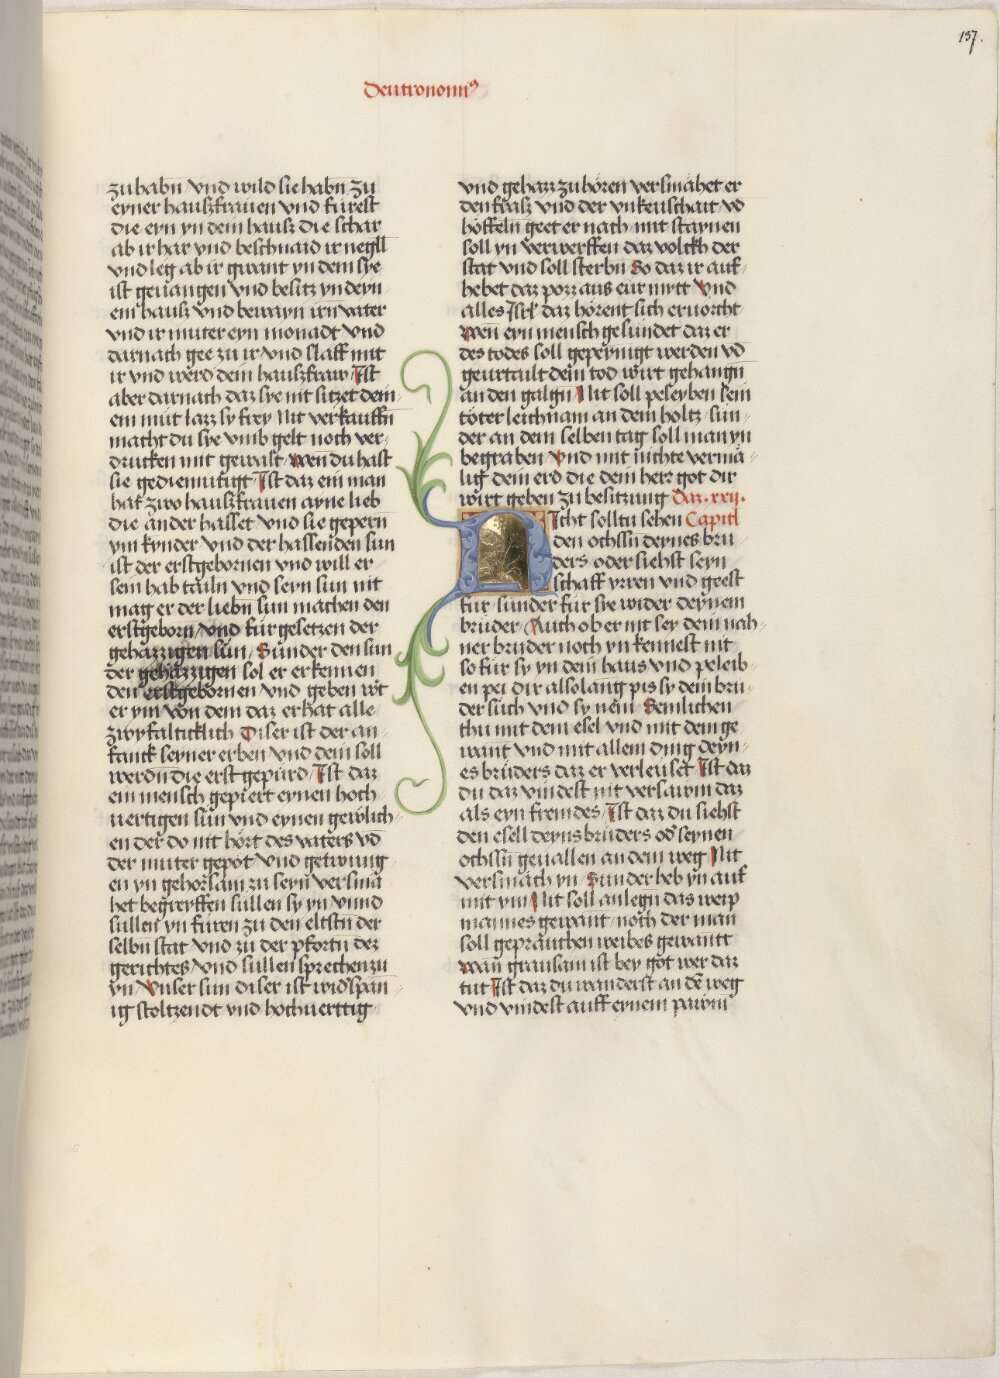 137.
Deutronomiꝰ
zu habn vnd wild sie habn zu
eyner hauszfrauen vnd fürest
die eyn yn dem hausz die schar
ab ir har vnd beschnaid ir negll
vnd leg ab ir gwant yn dem sye
ist geuangen vnd besitz yn deyn
em hausz vnd bewayn irn vater
vnd ir muter eyn monadt vnd
darnach gee zu ir vnd slaff mit
ir vnd werd dein hauszfraw Ist
aber darnach daz sye nit sitzet dein
em müt lazz sy frey Nit verkauffn
macht du sye vmb gelt noch ver-
drucken mit gewalt Wen du hast
sie gediemutigt Ist daz ein man
hat zwo hauszfrauen ayne lieb
die ander hasset vnd sie gepern
ym kynder vnd der hassenden sun
ist der erstgebornen vnd will er
sein hab tailn vnd seyn sun nit
mag er der liebn sun machen den
erstgeborn vnd für gesetzen der
gehazzigen sun Sunder den sun
der gehazzigen sol er erkennen
den erstgebornen vnd geben wt
er ym von dem daz er hat alle
zwyfalticklich Diser ist der an-
fanck seyner erben vnd dem soll
werdn die erst gepurd Ist daz
ein mensch gepiert eynen hoch
uertigen sun vnd eynen gewlich-
en der do nit hört des vaters vd
der muter gepot vnd getwung
en yn gehorsam zu seyn versma
het begreyffen sullen sy yn vnnd
sullen yn furen zu den eltstn der
selbn stat vnd zu der pfortn dez
gerichtes vnd sullen sprechen zu
yn Vnser sun diser ist widspan
ig stoltzendt vnd hochuerttig
vnd geharz zu hören versmahet er
den frasz vnd der vnkeuschait vd
höffeln geet er nach mit staynen
soll yn verwerffen daz volckh der
stat vnd soll sterbn So daz ir auf-
hebet daz pozz aus eur mytt Vnd
alles Isrl daz hörent sich eruorcht
Wen eyn mensch gesundet daz er
des todes soll gepeynigt werden vd
geurtailt dem tod wirt gehangn
an den galgn Nit soll peleyben sein
töter leichnam an dem holtz sun-
der an dem selben tag soll man yn
begraben Vnd mit nichte verma-
lig dein erd die dein herr got dir
wirt geben zu besitzung Daz .xxij.
Nicht solltu sehen Capitl
den ochssn deynes bru
ders oder siehst seyn
schaff yrren vnd geest
für sunder für sye wider deynem
bruder Auch ob er nit sey dein nah-
ner bruder noch yn kennest nit
so für sy yn dein haus vnd peleib-
en pei dir alsolang pis sy dein bru-
der such vnd sy nem Semlichen
thu mit dem esel vnd mit dem ge
want vnd mit allem ding deyn-
es bruders daz er verleuset Ist daz
du daz vindest nit versawm daz
als eyn fremdes Ist daz du siehst
den esell deyns bruders od seynen
ochssn geuallen an dem weg Nit
versmäch yn Sunder heb yn auf
mit ym Nit soll anlegn das weip
mannes gewant noch der man
soll geprauchen weibes gewantt
Wan grausam ist bey got wer daz
tut Ist daz du wanderst an de weg
vnd vindest auff eynem pawm